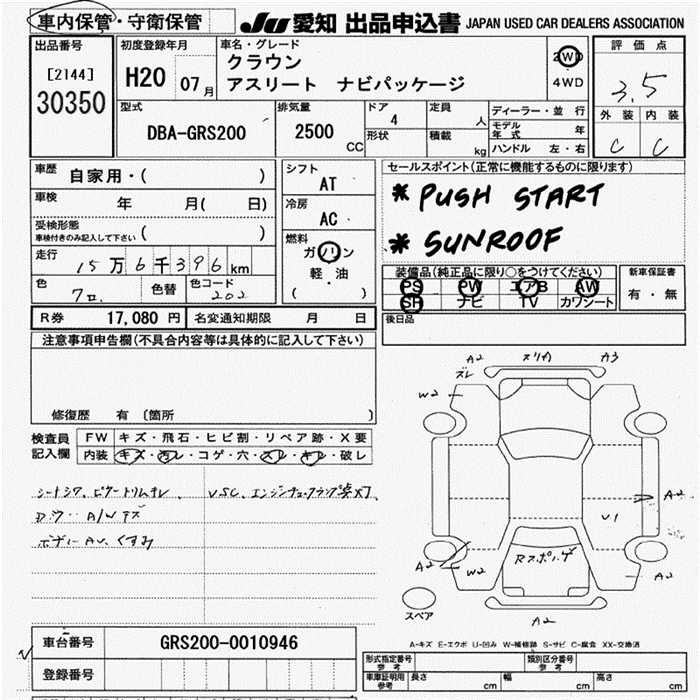 車内保管・守衛保管
JU 愛知 出品申込書 JAPAN USED CAR DEALERS ASSOCIATION
出品番号
[2144]
30350
初度登録年月
H20 07月
車名・グレード
クラウン
アスリート ナビパッケージ
2WD
4WD
評価点
3.5
外装 内装
C C
型式
DBA-GRS200
排気量
2500 CC
ドア
4
形状
定員
人
積載
kg
ディーラー・並行
モデル年式 年
ハンドル 左・右
車歴
自家用・( )
車検
年 月( 日)
受検形態
車検付きのみ記入して下さい ( )
走行
15万6千396km
色
色替
色コード
202
シフト
AT
冷房
AC
燃料
ガソリン
軽・油
( )
セールスポイント(正常に機能するものに限ります)
* PUSH START
* SUNROOF
装備品(純正品に限り○をつけてください)
PS PW エアB AW
SR ナビ TV カワシート
新車保証書
有・無
R券 17,080 円 名変通知期限 月 日
後日品
注意事項申告欄(不具合内容等は具体的に記入して下さい)
修復歴 有 〔箇所 〕
検査員
記入欄
FW キズ・飛石・ヒビ割・リペア跡・X要
内装 キズ・汚レ・コゲ・穴・スレ・キレ・破レ
A2
スリ
A3
ズレ
W2
A2
V1
A2
W2
A2
A2
スペア
A-キズ E-エクボ U-凹み W-補修跡 S-サビ C-腐食 XX-交換済
車台番号 GRS200-0010946
登録番号
形式指定番号
参考
類別区分番号
参考
車庫証明用
参考
長さ cm 幅 cm 高さ cm